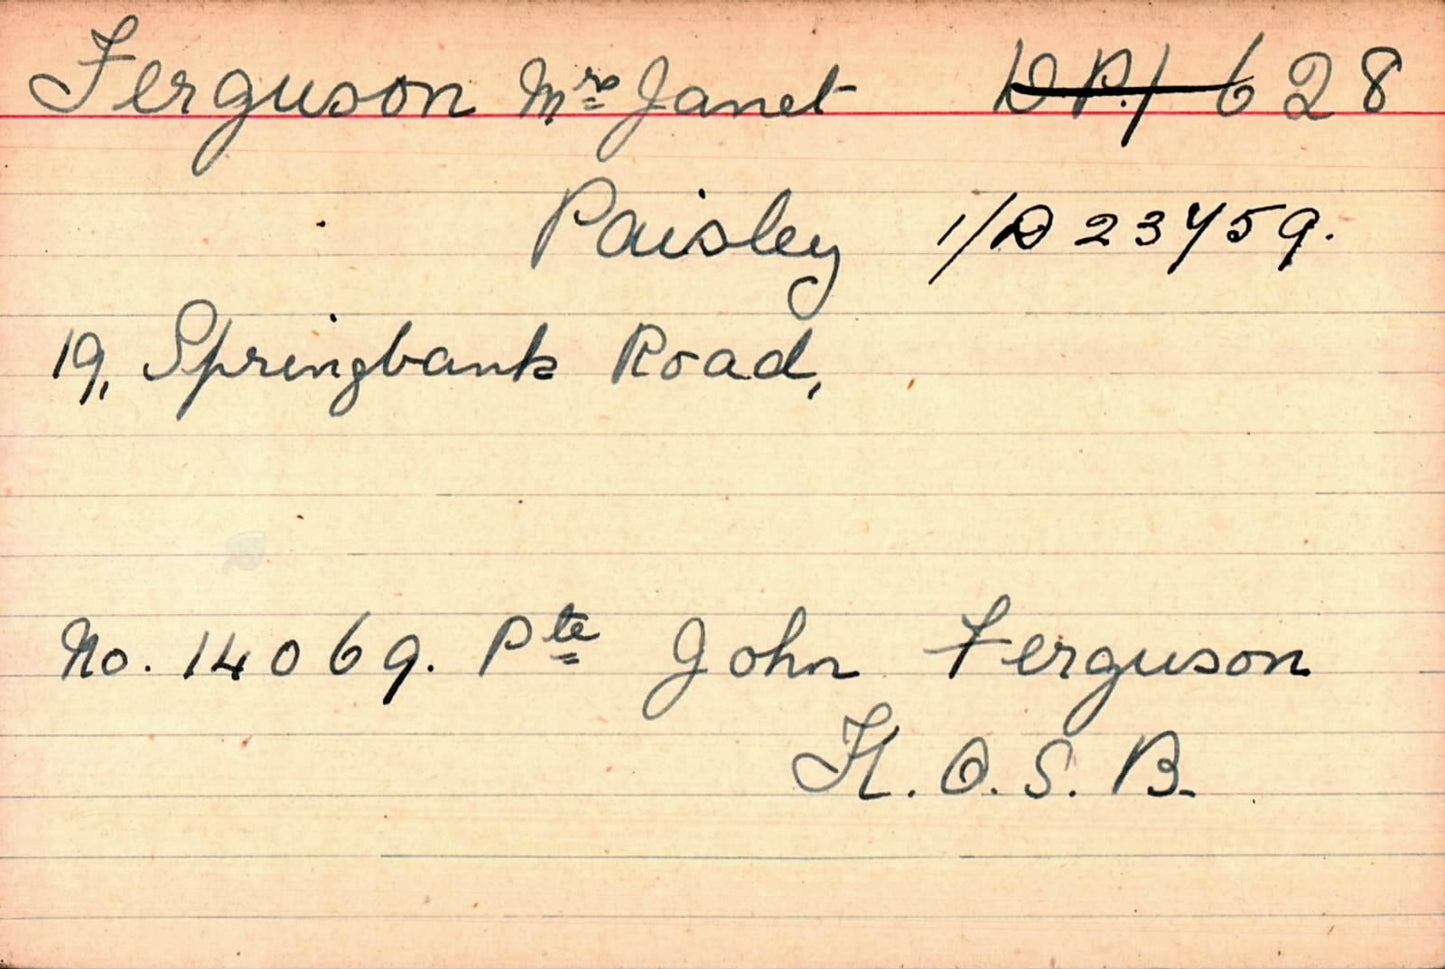 Ferguson Mrs Janet D.P./ 628
Paisley 1/D 23759.
19, Springbank Road,
No. 14069. Pte John Ferguson
K.O.S.B.